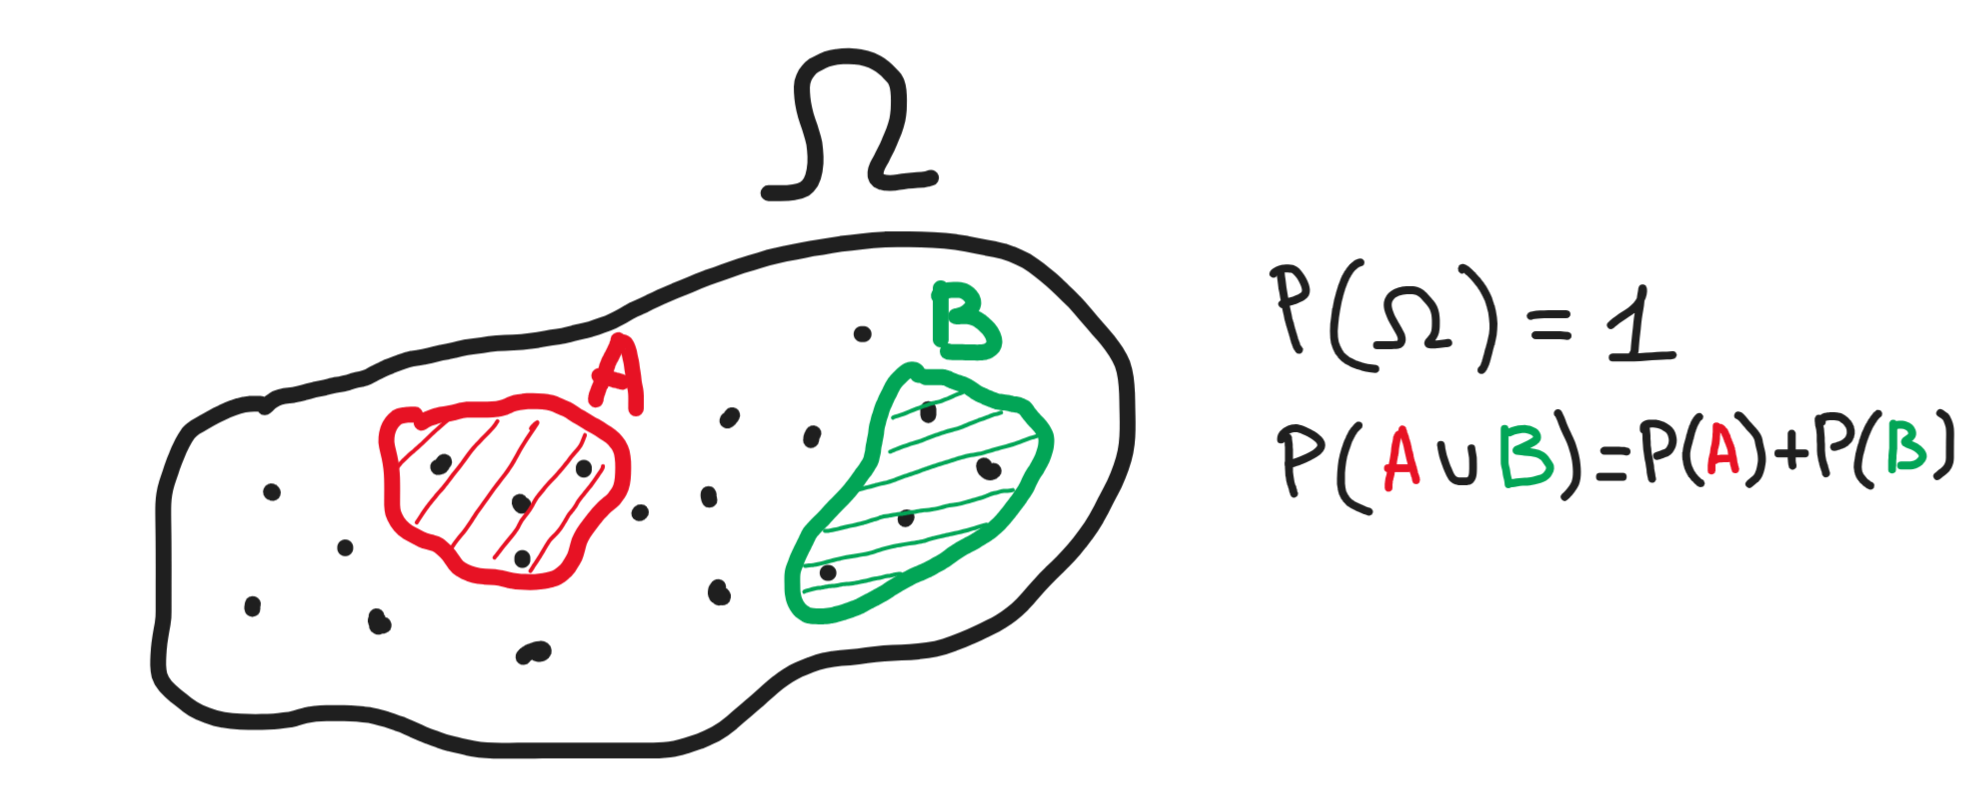 Ω
A
B
P(Ω) = 1
P(A ∪ B) = P(A) + P(B)